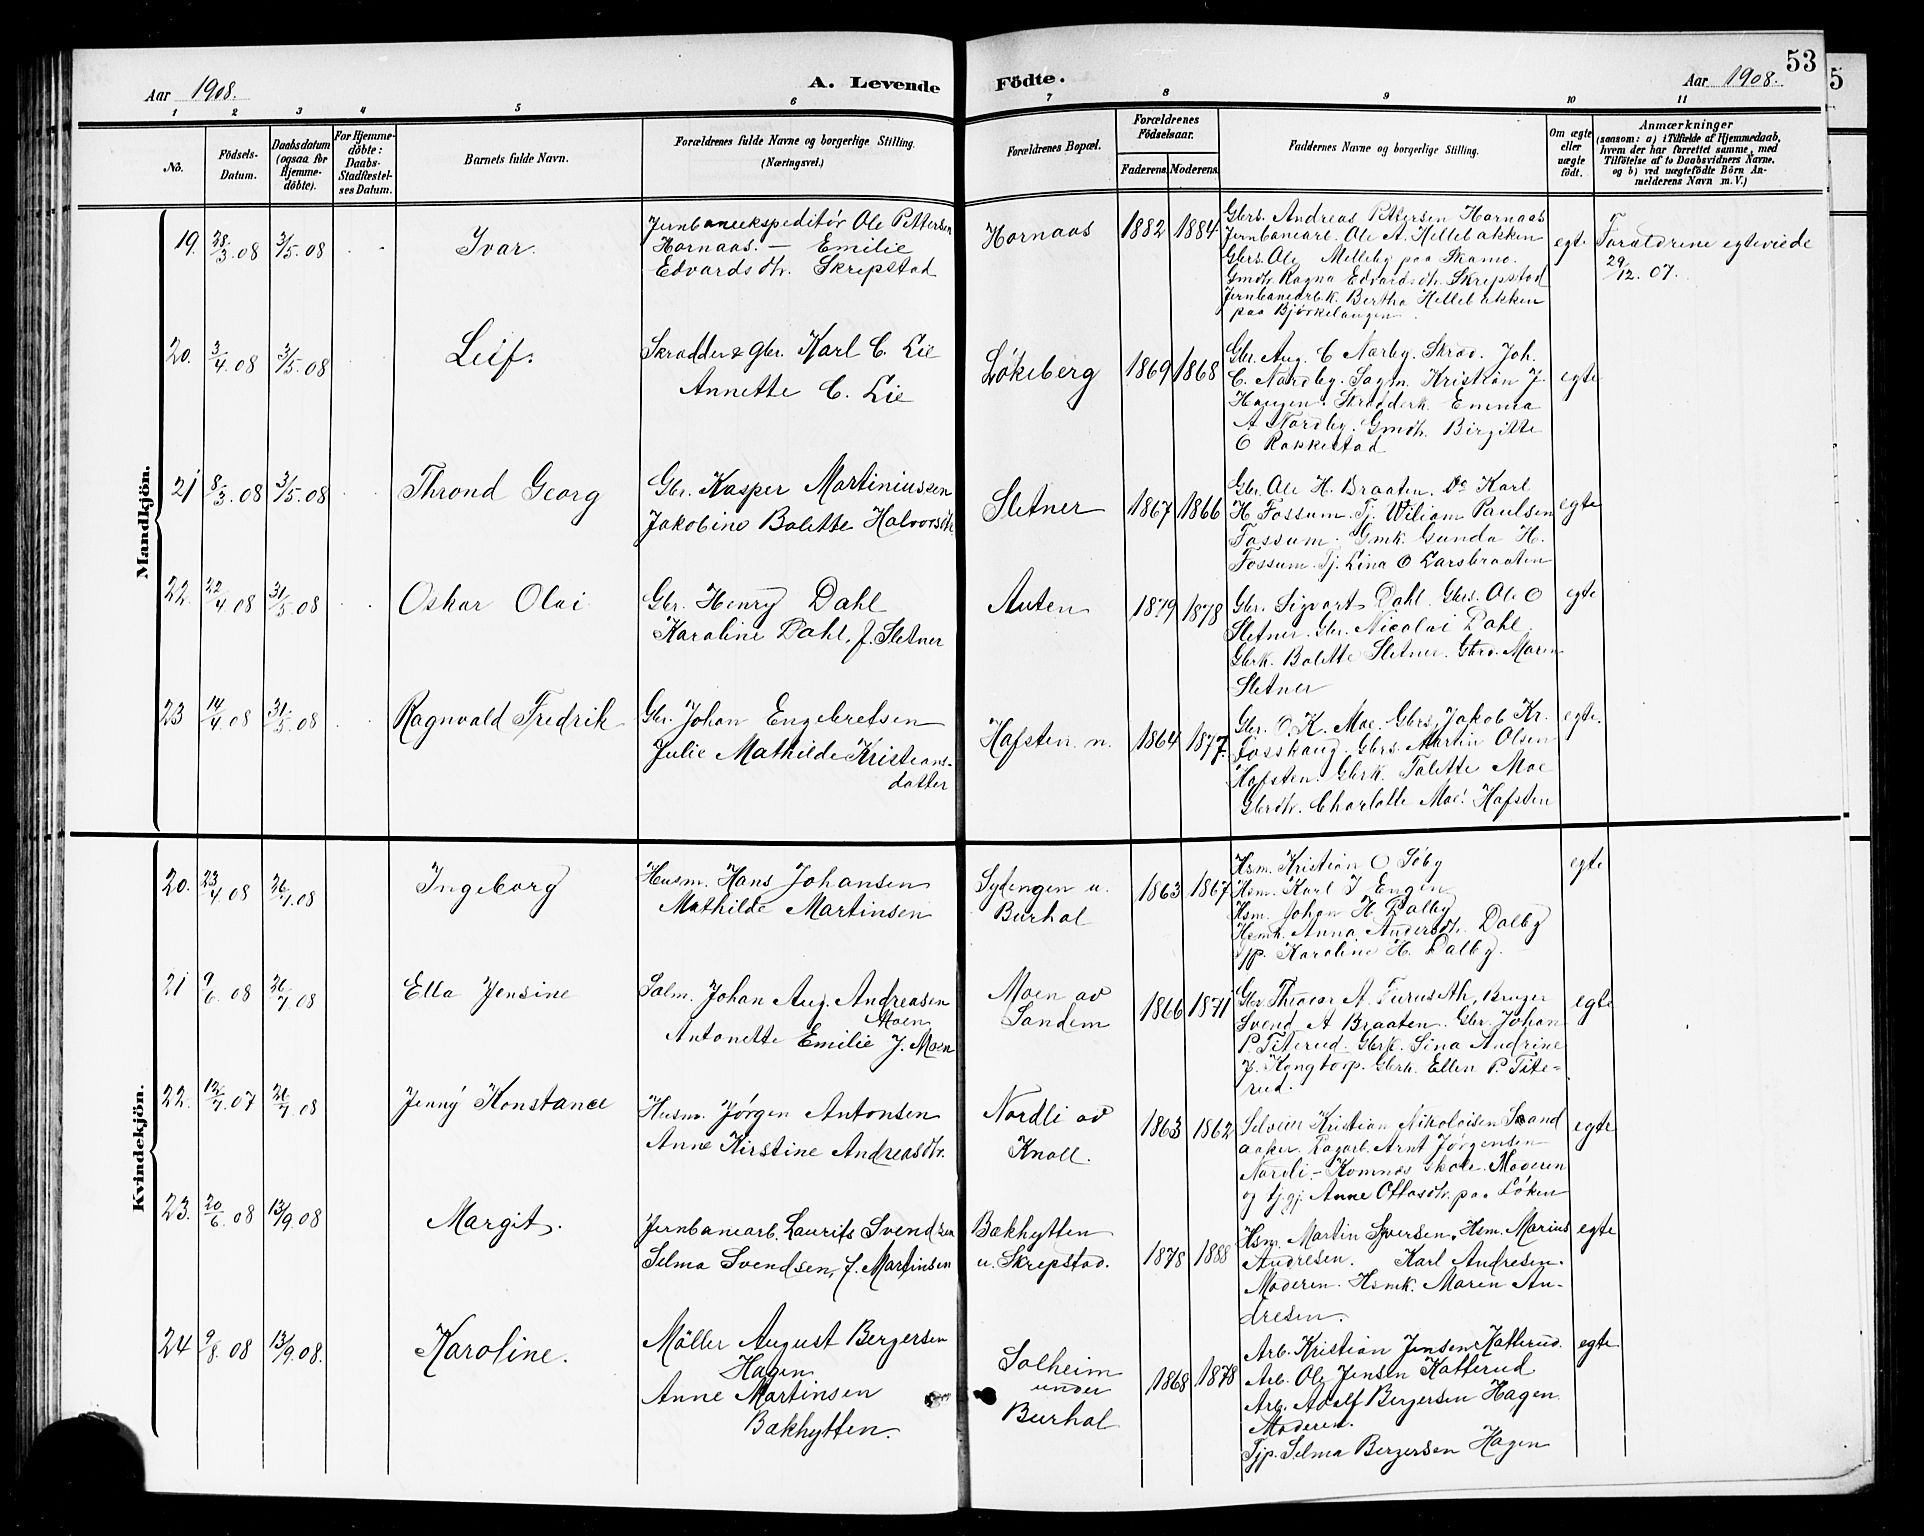 53
5
Aar 1908.
A. Levende
Födte.
Aar 1908.
1 2 3 4 5 6 7 8 9 10 11
No.
Födsels-
Datum.
Daabsdatum
(ogsaa for
Hjemme-
döbte).
For Hjemme-
döbte:
Daabs-
Stadfæstel-
ses Datum.
Barnets fulde Navn.
Forældrenes fulde Navne og borgerlige Stilling.
(Næringsvei.)
Forældrenes Bopæl.
Forældrenes
Födselsaar.
Faderens.
Moderens.
Faddernes Navne og borgerlige Stilling.
Om ægte
eller
uægte
födt.
Anmærkninger
(saasom: a) i Tilfælde af Hjemmedaab,
hvem der har forrettet samme, med
Tilföielse af to Daabsvidners Navne,
og b) ved uægtefödte Börn An-
melderens Navn m. V.)
Mandkjön.
19. 28/3 08 3/5 08 Ivar.
Jernbaneekspeditör Ole Pettersen
Hornaas. — Emilie
Edvardsdtr. Skrepstad
Hornaas 1882 1884
Gbrs. Andreas Pettersen Hornaas
Jernbanearb. Ole A. Hellebakken
Gbrs. Ole Melleby paa Skamo.
Gmdtr Ragna Edvardsdtr. Skrepstad
Jernbanearbk. Bertha Hellebakken
paa Bjørkelangen.
egte
Forældrene egteviede
29/12. 07.
20. 3/4. 08 3/5. 08 Leif.
Skrædder & Gbr. Karl C. Lie
Annette C. Lie
Løkeberg 1869 1868
Gbr. Aug. C Nærby. Skræd. Joh.
C. Nordby. Sagm. Kristian J.
Haugen. Skrædderk. Emma
A Nordby. Gmdtr. Birgitte
O Rakkestad
egte
21 8/3. 08 3/5. 08 Thrond Georg
Gbr. Kasper Martiniussen
Jakobine Bolette Halvorsdtr
Sletner 1867 1866
Gbr. Ole H. Braaten. Do Karl
H. Fossum. Tj. Wiliam Paulsen
Fossum. Gmk. Gunda H.
Fossum. Tj. Lina O Larsbraaten
egte
22. 22/4. 08 31/5 08 Oskar Olai
Gbr. Henry Dahl
Karoline Dahl, f. Sletner
Auten 1879 1878
Gbr. Sigvart Dahl. Gbrs. Ole O
Sletner. Gbr. Nicolai Dahl.
Gbrk. Bolette Sletner. Gbrd. Maren
Sletner
egte
23 14/4. 08 31/5. 08 Ragnvald Fredrik
Gbr. Johan Engebretsen
Julie Mathilde Kristians-
datter
Hafsten n. 1864 1877.
Gbr. O. K. Moe. Gbrs. Jakob Kr.
Fosshaug. Gbrs. Martin Olsen
Hafsten. Gbrk. Talette Moe
Gbrdtr. Charlotte Moe. Hafsten
egte.
Kvindekjön.
20. 23/4. 08 26/7. 08 Ingeborg
Husm. Hans Johansen
Mathilde Martinsen
Sydengen u.
Burhol
1863 1867
Hsm. Kristian O Søby
Hsm. Karl J Engen
Hsm. Johan H Dalby
Hsmk. Anna Andersdtr. Dalby
Tjp. Karoline H. Dalby.
egte
21 9/6 08 26/7. 08 Ella Jensine
Salm. Johan Aug. Andreasen
Moen
Antonette Emilie J. Moen
Moen av
Sandem
1866 1871
Gbr. Theodor A. Furuseth, Bruger
Svend A Braaten. Gbr. Johan
P. Titerud. Gbrk. Lina Andrine
J. Kongtorp. Gbrk. Ellen P. Tite-
rud.
egte
22. 12/7. 07 26/7. 08 Jenny Konstance
Husm. Jørgen Antonsen
Anne Kirstine Andreasdtr.
Nordli av
Knoll.
1863 1862
Selveier Kristian Nikolaisen Saand
aaker. Arnt Jørgensen
Nordli – Komnæs skole. Moderen
og tj.gj. Anne Ottosdtr. paa Løken
egte
23. 20/6. 08 13/9. 08 Margit.
Jernbanearb. Laurits Svendsen
Selma Svendsen, f. Martinsen
Bakhytten
u. Skrepstad.
1878 1888
Hsm. Martin Syversen, Hsm. Marius
Andresen. Karl Andresen.
Moderen. Hsmk. Maren An-
dresen.
egte
24 9/8. 08 13/9. 08. Karoline.
Møller August Bergersen
Hagen.
Anne Martinsen
Bakhytten.
Solheim
under
Burhol
1868 1878
Arb. Kristian Jensen Katterud.
Arb. Ole Jensen Katterud.
Arb. Adolf Bergersen Hagen.
Moderen.
Tjp. Selma Bergersen Hagen
egte